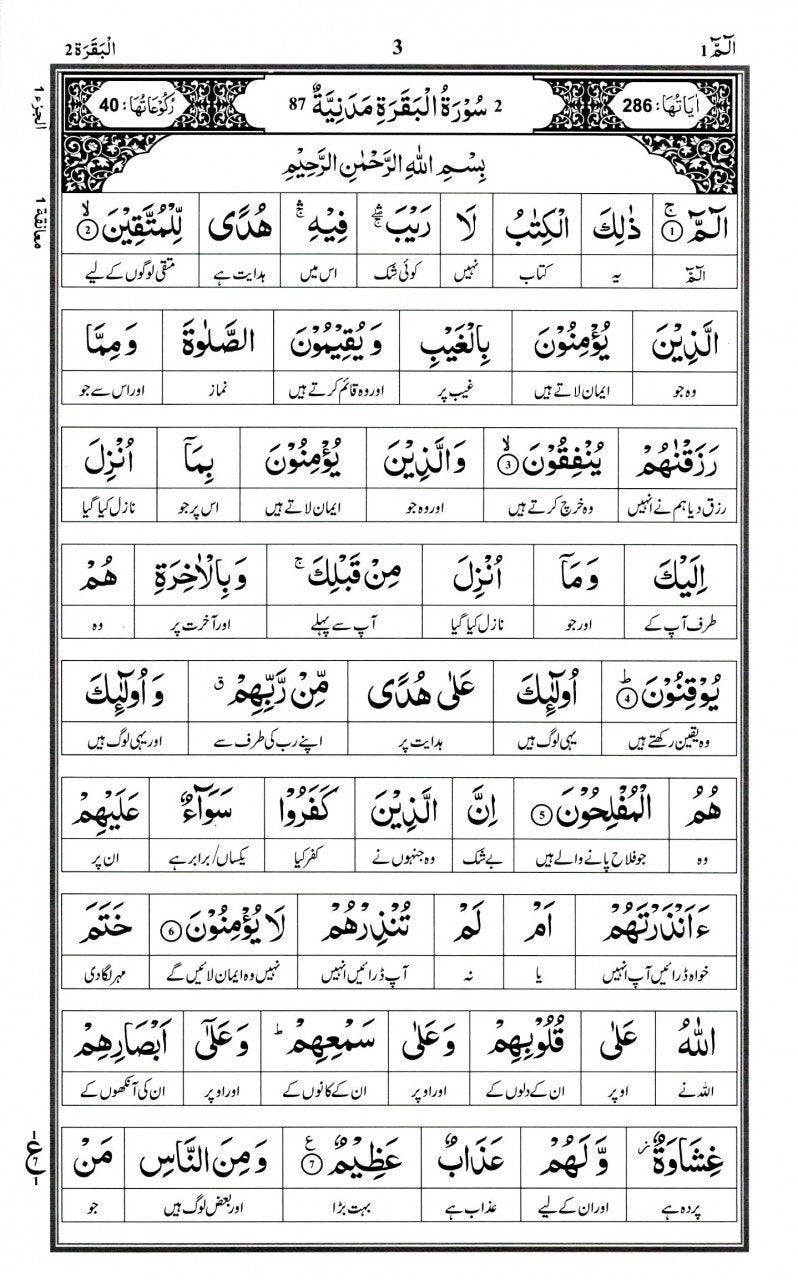 الٓمّٓ 1 3 اَلْبَقَرَة 2
اٰيَاتُهَا: 286 2 سُوْرَةُ الْبَقَرَةِ مَدَنِيَّةٌ 87 رُكُوْعَاتُهَا: 40
بِسْمِ اللهِ الرَّحْمٰنِ الرَّحِيْمِ
الجزء ١
معانقة ١
الٓمّٓ ۚ ① ذٰلِكَ الْكِتٰبُ لَا رَيْبَ ۛۖ فِيْهِ ۛ هُدًى لِّلْمُتَّقِيْنَ ۙ ②
الٓمّٓ یہ کتاب نہیں کوئی شک اس میں ہدایت ہے متقی لوگوں کے لیے
الَّذِيْنَ يُؤْمِنُوْنَ بِالْغَيْبِ وَيُقِيْمُوْنَ الصَّلٰوةَ وَمِمَّا
وہ جو ایمان لاتے ہیں غیب پر اور وہ قائم کرتے ہیں نماز اور اس سے جو
رَزَقْنٰهُمْ يُنْفِقُوْنَ ۙ ③ وَالَّذِيْنَ يُؤْمِنُوْنَ بِمَآ اُنْزِلَ
رزق دیا ہم نے انہیں وہ خرچ کرتے ہیں اور وہ جو ایمان لاتے ہیں اس پر جو نازل کیا گیا
اِلَيْكَ وَمَآ اُنْزِلَ مِنْ قَبْلِكَ ۚ وَبِالْاٰخِرَةِ هُمْ
طرف آپ کے اور جو نازل کیا گیا آپ سے پہلے اور آخرت پر وہ
يُوْقِنُوْنَ ؕ ④ اُولٰٓئِكَ عَلٰى هُدًى مِّنْ رَّبِّهِمْ ق وَاُولٰٓئِكَ
وہ یقین رکھتے ہیں یہی لوگ ہیں ہدایت پر اپنے رب کی طرف سے اور یہی لوگ ہیں
هُمُ الْمُفْلِحُوْنَ ⑤ اِنَّ الَّذِيْنَ كَفَرُوْا سَوَآءٌ عَلَيْهِمْ
وہ جو فلاح پانے والے ہیں بے شک وہ جنہوں نے کفر کیا یکساں/برابر ہے ان پر
ءَاَنْذَرْتَهُمْ اَمْ لَمْ تُنْذِرْهُمْ لَا يُؤْمِنُوْنَ ⑥ خَتَمَ
خواہ ڈرائیں آپ انہیں یا نہ آپ ڈرائیں انہیں نہیں وہ ایمان لائیں گے مہر لگا دی
اللهُ عَلٰى قُلُوْبِهِمْ وَعَلٰى سَمْعِهِمْ ؕ وَعَلٰٓى اَبْصَارِهِمْ
اللہ نے اوپر ان کے دلوں کے اور اوپر ان کے کانوں کے اور اوپر ان کی آنکھوں کے
غِشَاوَةٌ ز وَّلَهُمْ عَذَابٌ عَظِيْمٌ ع ⑦ وَمِنَ النَّاسِ مَنْ
پردہ ہے اور ان کے لیے عذاب ہے بہت بڑا اور بعض لوگ ہیں جو
١
ع
٧
١